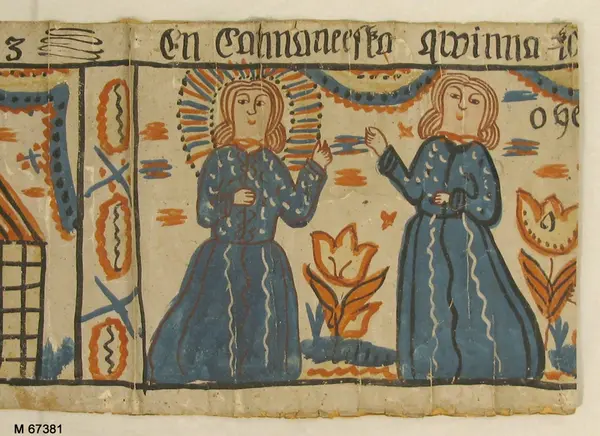 3 En Cahnaneeska qwinna
oge
M 67381